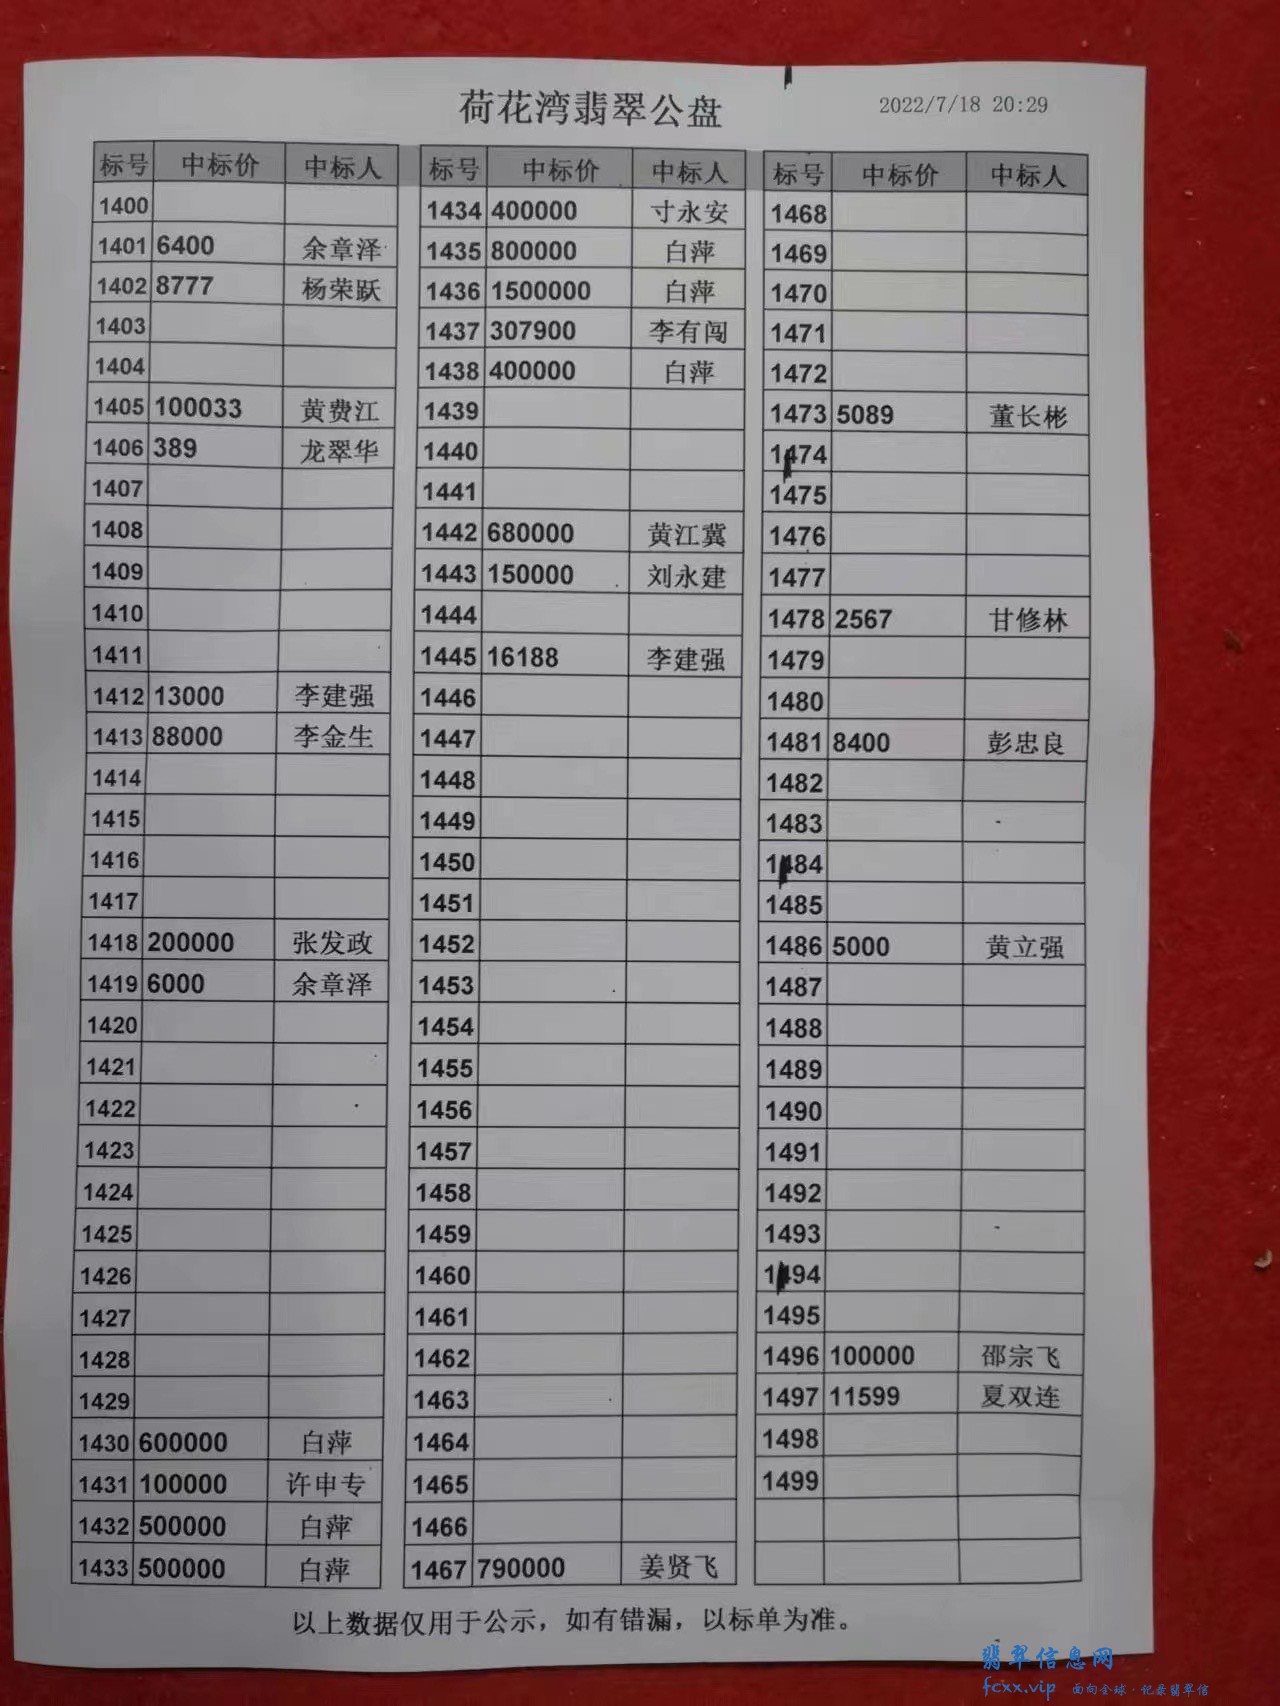 荷花湾翡翠公盘
2022/7/18 20:29
标号 中标价 中标人 标号 中标价 中标人 标号 中标价 中标人
1400 1434 400000 寸永安 1468
1401 6400 余章泽 1435 800000 白萍 1469
1402 8777 杨荣跃 1436 1500000 白萍 1470
1403 1437 307900 李有闯 1471
1404 1438 400000 白萍 1472
1405 100033 黄费江 1439 1473 5089 董长彬
1406 389 龙翠华 1440 1474
1407 1441 1475
1408 1442 680000 黄江冀 1476
1409 1443 150000 刘永建 1477
1410 1444 1478 2567 甘修林
1411 1445 16188 李建强 1479
1412 13000 李建强 1446 1480
1413 88000 李金生 1447 1481 8400 彭忠良
1414 1448 1482
1415 1449 1483
1416 1450 1484
1417 1451 1485
1418 200000 张发政 1452 1486 5000 黄立强
1419 6000 余章泽 1453 1487
1420 1454 1488
1421 1455 1489
1422 1456 1490
1423 1457 1491
1424 1458 1492
1425 1459 1493
1426 1460 1494
1427 1461 1495
1428 1462 1496 100000 邵宗飞
1429 1463 1497 11599 夏双连
1430 600000 白萍 1464 1498
1431 100000 许申专 1465 1499
1432 500000 白萍 1466
1433 500000 白萍 1467 790000 姜贤飞
以上数据仅用于公示，如有错漏，以标单为准。
翡翠信息网
fcxx.vip 面向全球·记录翡翠信